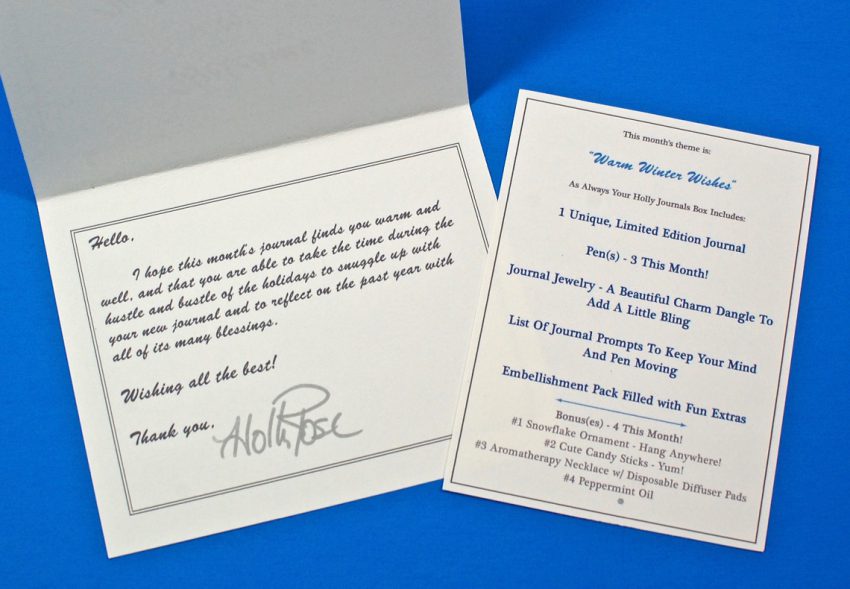 Hello,
I hope this month's journal finds you warm and
well, and that you are able to take the time during the
hustle and bustle of the holidays to snuggle up with
your new journal and to reflect on the past year with
all of its many blessings.
Wishing all the best!
Thank you,
Holly Rose
This month's theme is:
"Warm Winter Wishes"
As Always Your Holly Journals Box Includes:
1 Unique, Limited Edition Journal
Pen(s) - 3 This Month!
Journal Jewelry - A Beautiful Charm Dangle To
Add A Little Bling
List Of Journal Prompts To Keep Your Mind
And Pen Moving
Embellishment Pack Filled with Fun Extras
Bonus(es) - 4 This Month!
#1 Snowflake Ornament - Hang Anywhere!
#2 Cute Candy Sticks - Yum!
#3 Aromatherapy Necklace w/ Disposable Diffuser Pads
#4 Peppermint Oil